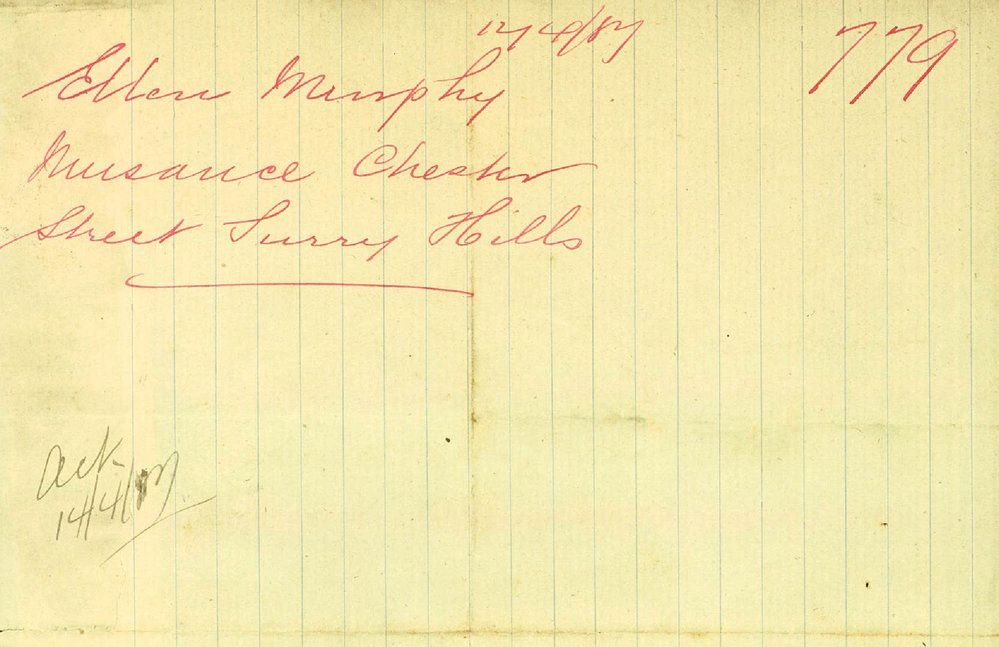 12/4/87
779
Ellen Murphy
Nuisance Chester
Street Surry Hills
Ack
14/4/87